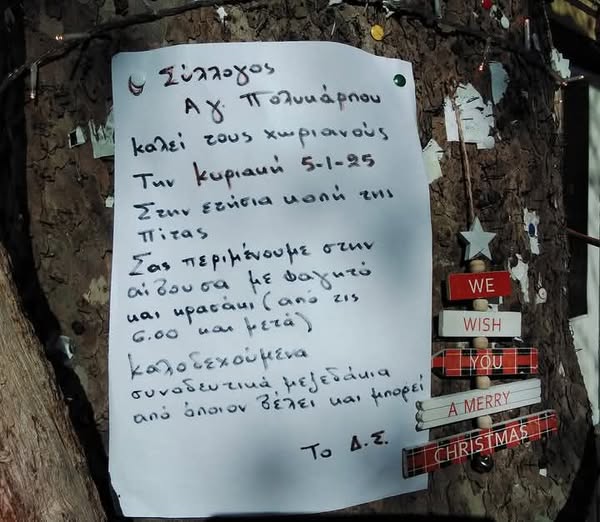 Σύλλογος
Αγ. Πολυκάρπου
καλεί τους χωριανούς
Την κυριακή 5-1-25
Στην ετήσια κοπή της
πίτας
Σας περιμένουμε στην
αίθουσα με φαγητό
και κρασάκι (από τις
6.00 και μετά)
καλοδεχούμενα
συνοδευτικά μεζεδάκια
από όποιον θέλει και μπορεί
Το Δ.Σ.
WE
WISH
YOU
A MERRY
CHRISTMAS